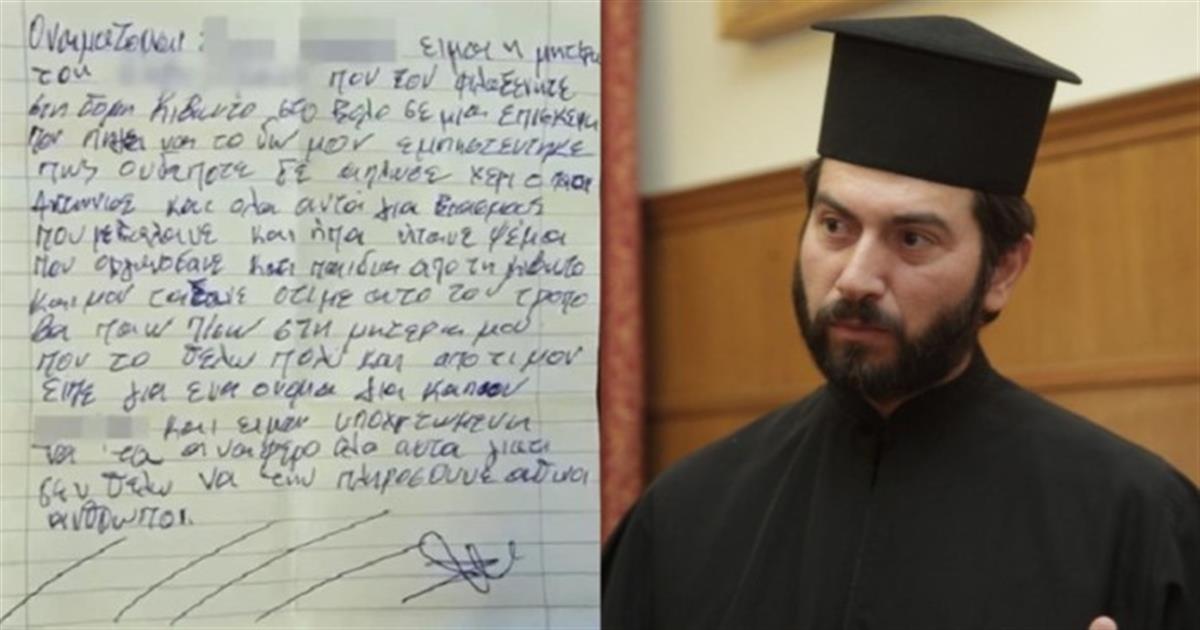 Ονοματεπωνυμ: ειμαι η μητερα
του που τον φιλοξενητε
στη δομη Κιβωτο στο Βολο σε μια επισκεψη
που πηγα να το δω μου εμπηστευτηκε
πως ουδεποτε δε απλωσε χερι ο πατα
Αντωνιος και ολα αυτα για βιασμους
που με βαλανε και ηπα ητανε ψεμα
που οργανοσανε κατι παιδια απο τη κιβωτο
και μου ταξανε οτι με αυτο τον τροπο
θα παω πισω στη μητερα μου
που το θελω πολυ και απο τι μου
ειπε για ενα ονομα για καποιον
και ειμαι υποχρεωμενη
να τα αναφερο ολα αυτα γιατι
δεν θελω να την πληροσουνε αθωα
ανθρωποι.